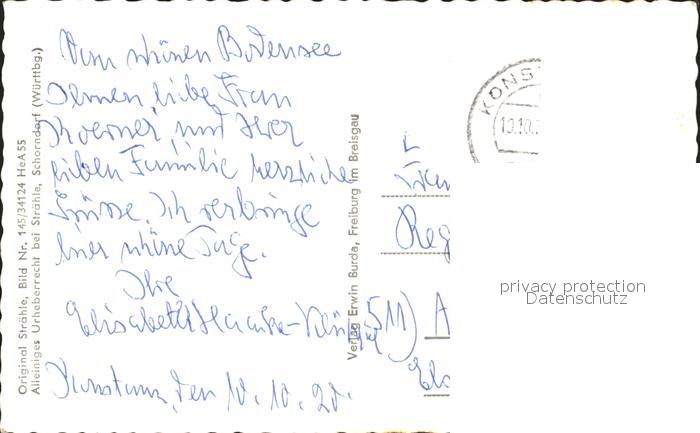 Original Strähle, Bild Nr. 145/34124 HeA55
Alleiniges Urheberrecht bei Strähle, Schorndorf (Württbg.)
Vom schönen Bodensee
Ihnen, liebe Frau
und Ihrer
lieben Familie herzliche
Grüsse. Ich verbringe
hier schöne Tage.
Ihre
Elisabeth
Konstanz, den 10. 10.
Verlag Erwin Burda, Freiburg im Breisgau
KONS
10.10.
Reg
511) A
privacy protection
Datenschutz